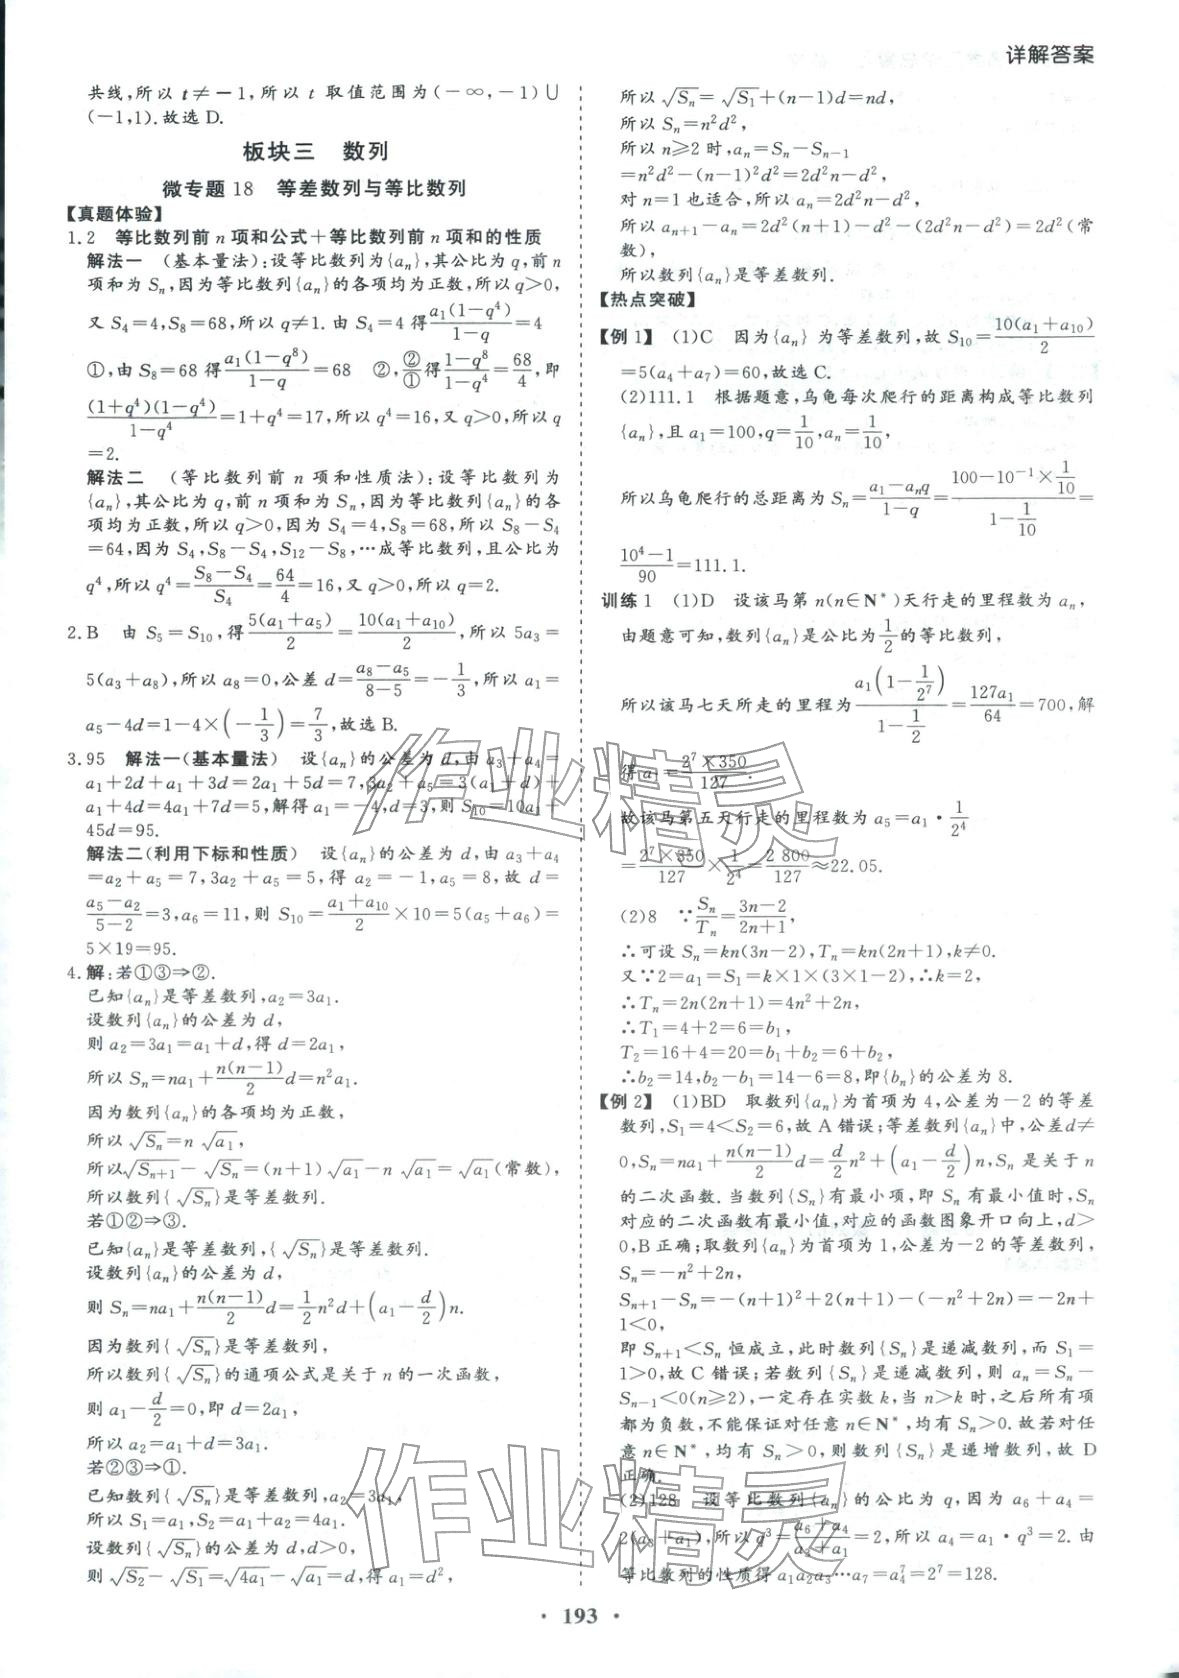 详解答案
共线,所以 t≠-1,所以 t 取值范围为(-∞,-1)∪
(-1,1).故选 D.
板块三 数列
微专题 18 等差数列与等比数列
【真题体验】
1.2 等比数列前 n 项和公式+等比数列前 n 项和的性质
解法一 (基本量法):设等比数列为{aₙ},其公比为 q,前 n
项和为 Sₙ,因为等比数列{aₙ}的各项均为正数,所以 q>0,
又 S₄=4,S₈=68,所以 q≠1.由 S₄=4 得 a₁(1-q⁴)/(1-q)=4
①,由 S₈=68 得 a₁(1-q⁸)/(1-q)=68 ②,②/①得(1-q⁸)/(1-q⁴)=68/4,即
(1+q⁴)(1-q⁴)/(1-q⁴)=1+q⁴=17,所以 q⁴=16,又 q>0,所以 q
=2.
解法二 (等比数列前 n 项和性质法):设等比数列为
{aₙ},其公比为 q,前 n 项和为 Sₙ,因为等比数列{aₙ}的各
项均为正数,所以 q>0,因为 S₄=4,S₈=68,所以 S₈-S₄
=64,因为 S₄,S₈-S₄,S₁₂-S₈,…成等比数列,且公比为
q⁴,所以 q⁴=(S₈-S₄)/S₄=64/4=16,又 q>0,所以 q=2.
2.B 由 S₅=S₁₀,得 5(a₁+a₅)/2=10(a₁+a₁₀)/2,所以 5a₃=
5(a₃+a₈),所以 a₈=0,公差 d=(a₈-a₅)/(8-5)=-1/3,所以 a₁=
a₅-4d=1-4×(-1/3)=7/3,故选 B.
3.95 解法一(基本量法) 设{aₙ}的公差为 d,由 a₃+a₄=
a₁+2d+a₁+3d=2a₁+5d=7,3a₂+a₅=3(a₁+d)+
a₁+4d=4a₁+7d=5,解得 a₁=-4,d=3,则 S₁₀=10a₁+
45d=95.
解法二(利用下标和性质) 设{aₙ}的公差为 d,由 a₃+a₄
=a₂+a₅=7,3a₂+a₅=5,得 a₂=-1,a₅=8,故 d=
(a₅-a₂)/(5-2)=3,a₆=11,则 S₁₀=(a₁+a₁₀)/2×10=5(a₅+a₆)=
5×19=95.
4.解:若①③⇒②.
已知{aₙ}是等差数列,a₂=3a₁.
设数列{aₙ}的公差为 d,
则 a₂=3a₁=a₁+d,得 d=2a₁,
所以 Sₙ=na₁+n(n-1)/2 d=n²a₁.
因为数列{aₙ}的各项均为正数,
所以 √Sₙ=n √a₁,
所以√Sₙ₊₁-√Sₙ=(n+1)√a₁-n √a₁=√a₁(常数),
所以数列{√Sₙ}是等差数列.
若①②⇒③.
已知{aₙ}是等差数列,{√Sₙ}是等差数列.
设数列{aₙ}的公差为 d,
则 Sₙ=na₁+n(n-1)/2 d=1/2 n²d+(a₁-d/2)n.
因为数列{√Sₙ}是等差数列,
所以数列{√Sₙ}的通项公式是关于 n 的一次函数,
则 a₁-d/2=0,即 d=2a₁,
所以 a₂=a₁+d=3a₁.
若②③⇒①.
已知数列{√Sₙ}是等差数列,a₂=3a₁,
所以 S₁=a₁,S₂=a₁+a₂=4a₁.
设数列{√Sₙ}的公差为 d,d>0,
则 √S₂-√S₁=√4a₁-√a₁=d,得 a₁=d²,
所以 √Sₙ=√S₁+(n-1)d=nd,
所以 Sₙ=n²d²,
所以 n≥2 时,aₙ=Sₙ-Sₙ₋₁
=n²d²-(n-1)²d²=2d²n-d²,
对 n=1 也适合,所以 aₙ=2d²n-d²,
所以 aₙ₊₁-aₙ=2d²(n+1)-d²-(2d²n-d²)=2d²(常
数),
所以数列{aₙ}是等差数列.
【热点突破】
【例 1】 (1)C 因为{aₙ}为等差数列,故 S₁₀=10(a₁+a₁₀)/2
=5(a₄+a₇)=60,故选 C.
(2)111.1 根据题意,乌龟每次爬行的距离构成等比数列
{aₙ},且 a₁=100,q=1/10,aₙ=1/10,
所以乌龟爬行的总距离为 Sₙ=(a₁-aₙq)/(1-q)=(100-10⁻¹×1/10)/(1-1/10)=
(10⁴-1)/90=111.1.
训练 1 (1)D 设该马第 n(n∈N*)天行走的里程数为 aₙ,
由题意可知,数列{aₙ}是公比为1/2的等比数列,
所以该马七天所走的里程为 a₁(1-1/2⁷)/(1-1/2)=127a₁/64=700,解
得 a₁=(2⁷×350)/127.
故该马第五天行走的里程数为 a₅=a₁·1/2⁴
=(2⁷×350)/127×1/2⁴=2 800/127≈22.05.
(2)8 ∵Sₙ/Tₙ=(3n-2)/(2n+1),
∴可设 Sₙ=kn(3n-2),Tₙ=kn(2n+1),k≠0.
又∵2=a₁=S₁=k×1×(3×1-2),∴k=2,
∴Tₙ=2n(2n+1)=4n²+2n,
∴T₁=4+2=6=b₁,
T₂=16+4=20=b₁+b₂=6+b₂,
∴b₂=14,b₂-b₁=14-6=8,即{bₙ}的公差为 8.
【例 2】 (1)BD 取数列{aₙ}为首项为 4,公差为-2 的等差
数列,S₁=4<S₂=6,故 A 错误;等差数列{aₙ}中,公差d≠
0,Sₙ=na₁+n(n-1)/2 d=d/2 n²+(a₁-d/2)n,Sₙ 是关于 n
的二次函数.当数列{Sₙ}有最小项,即 Sₙ 有最小值时,Sₙ
对应的二次函数有最小值,对应的函数图象开口向上,d>
0,B 正确;取数列{aₙ}为首项为 1,公差为-2 的等差数列,
Sₙ=-n²+2n,
Sₙ₊₁-Sₙ=-(n+1)²+2(n+1)-(-n²+2n)=-2n+
1<0,
即 Sₙ₊₁<Sₙ 恒成立,此时数列{Sₙ}是递减数列,而 S₁=
1>0,故 C 错误;若数列{Sₙ}是递减数列,则 aₙ=Sₙ-
Sₙ₋₁<0(n≥2),一定存在实数 k,当 n>k 时,之后所有项
都为负数,不能保证对任意 n∈N*,均有 Sₙ>0.故若对任
意 n∈N*,均有 Sₙ>0,则数列{Sₙ}是递增数列,故 D
正确.
(2)128 设等比数列{aₙ}的公比为 q,因为 a₆+a₄=
2(a₃+a₁),所以 q³=(a₆+a₄)/(a₃+a₁)=2,所以 a₄=a₁·q³=2.由
等比数列的性质得 a₁a₂a₃…a₇=a₄⁷=2⁷=128.
作业精灵
作业精灵
· 193 ·